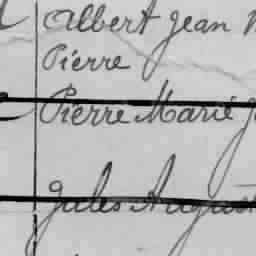 Albert Jean
Pierre
Pierre Marie
Jules August